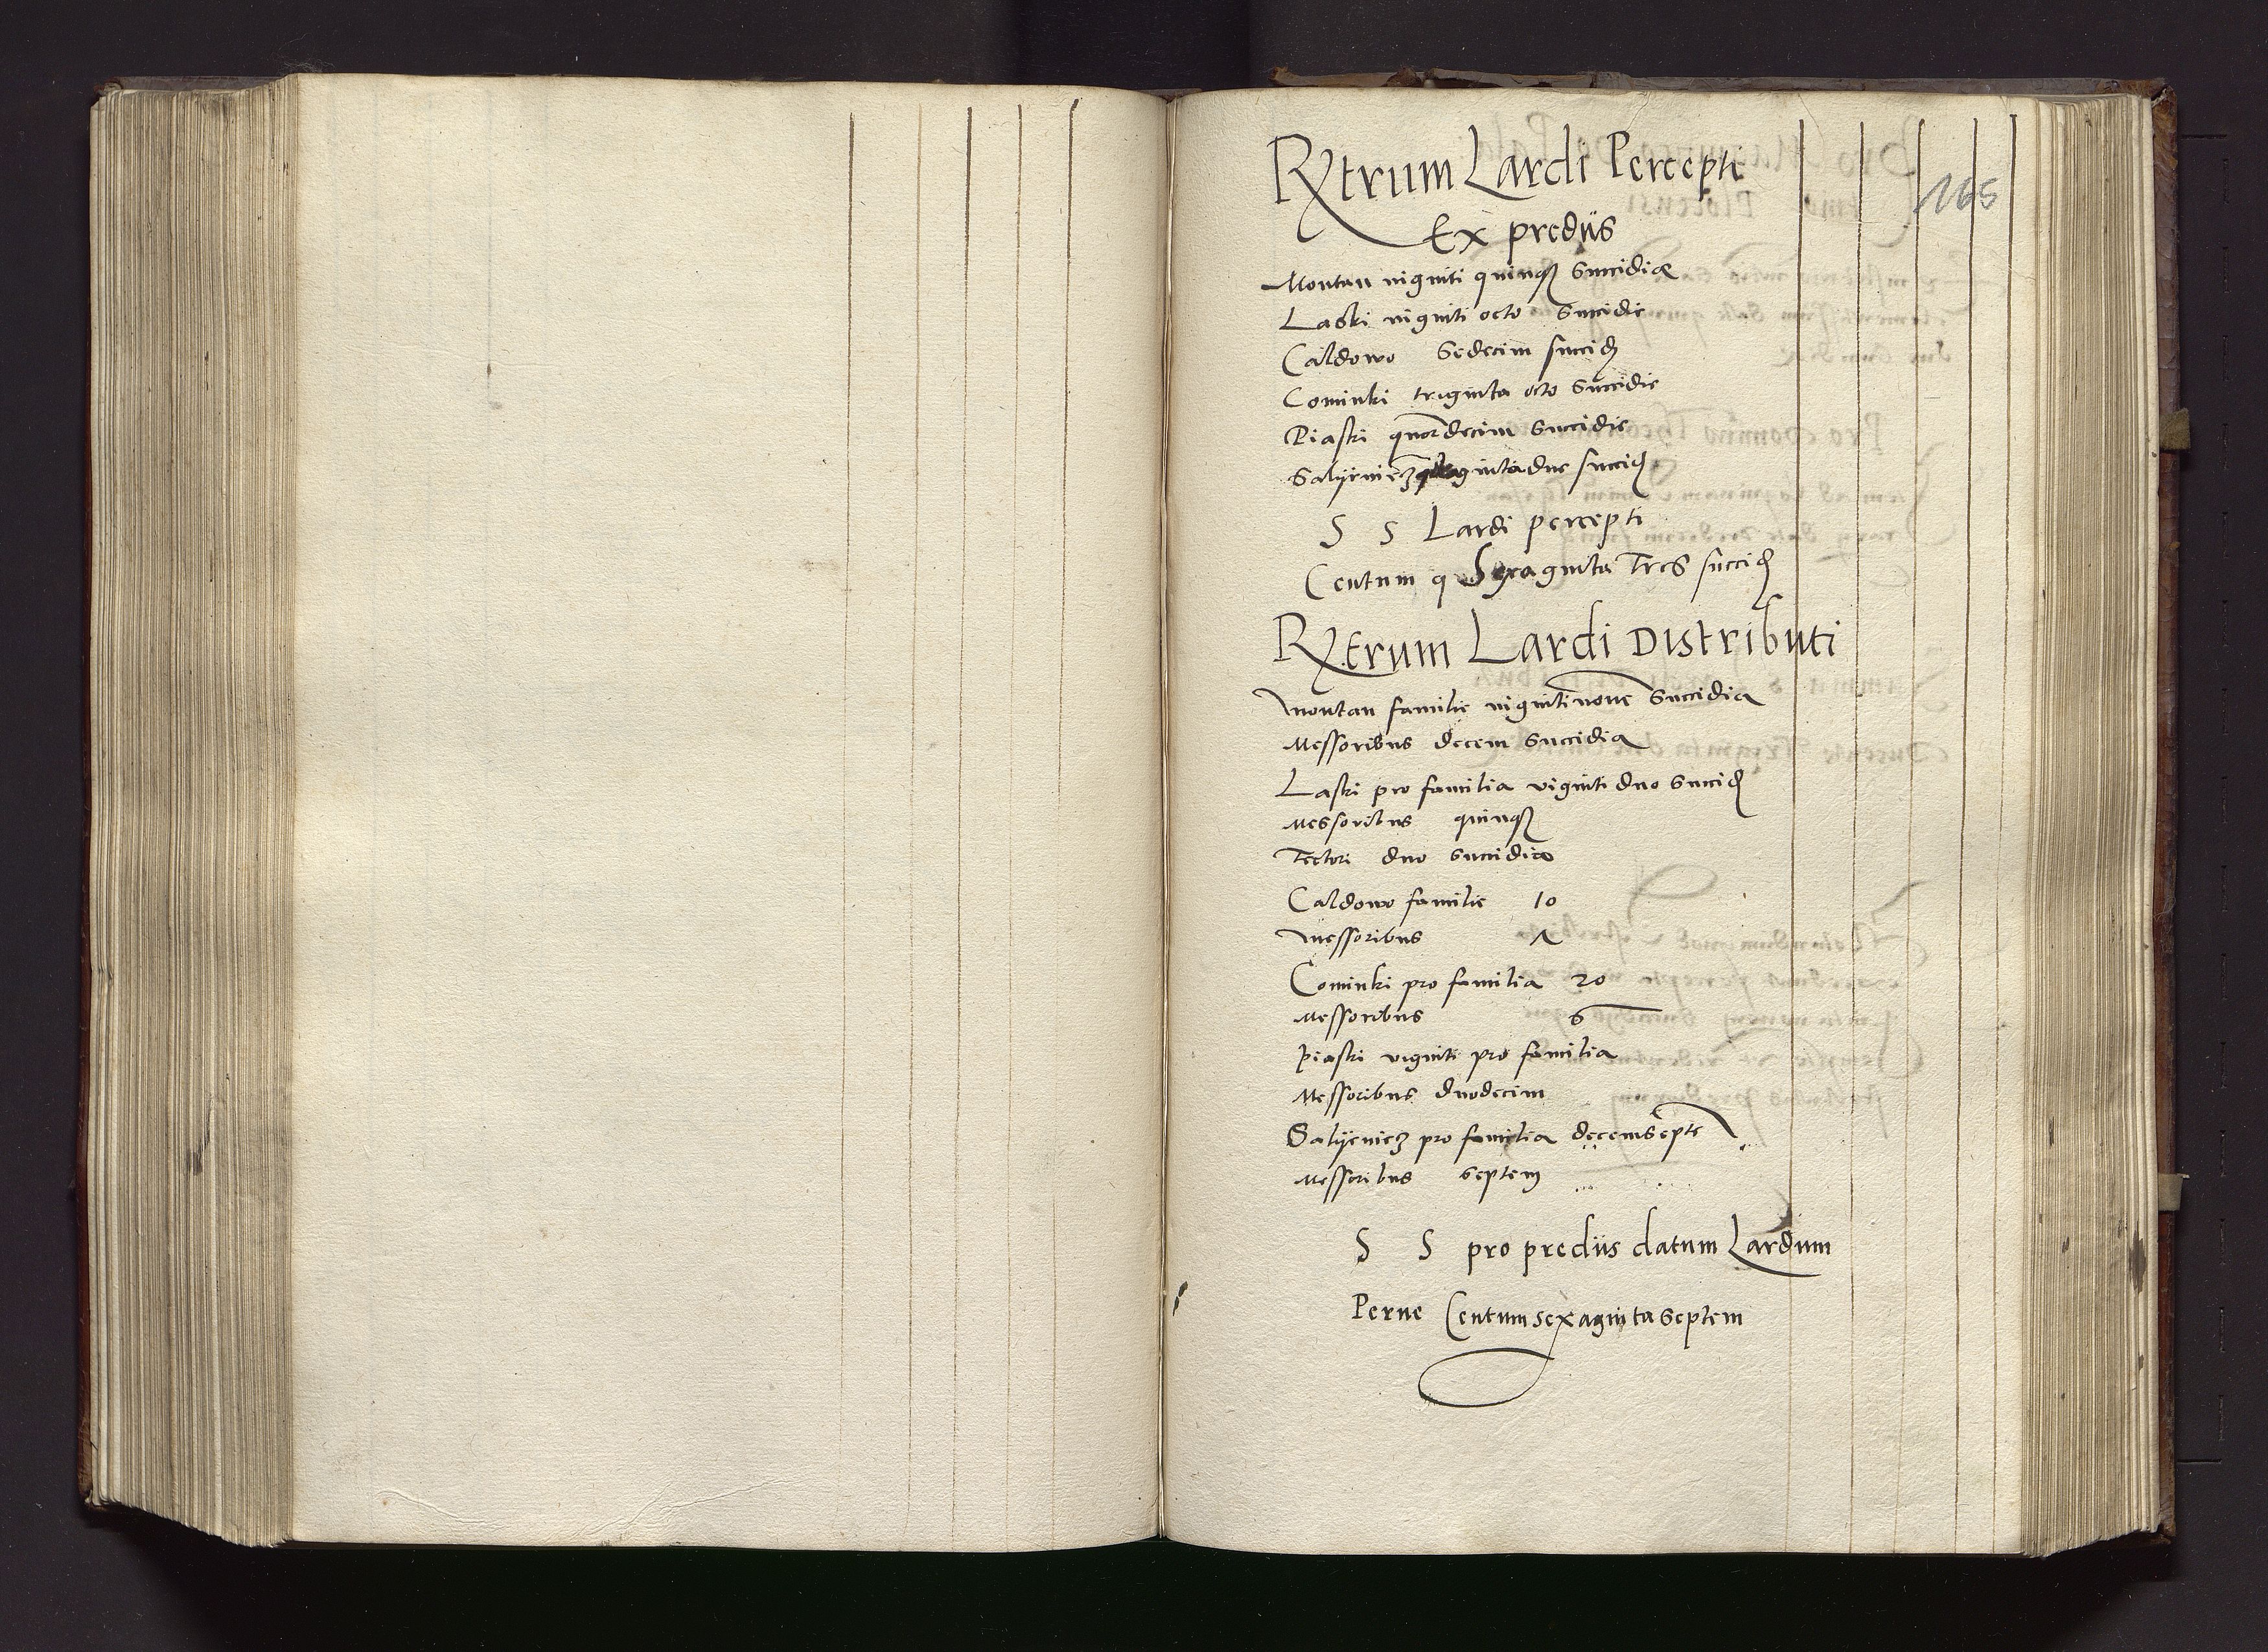 165
Rxtrum Lardi Percepti
Ex prediis
Montau viginti quinqȝ Succidia
Laski viginti octo Succidie
Caldowo Sedecim succid
Cominki triginta octo Succidie
Piaski quordecim Succidie
Salyeniecz ginta due succid
S S Lardi percepti
Centum q Sexaginta Tres succid
Rxtrum Lardi Distributi
Montau familie viginti nove Succidia
Messoribus decem Succidia
Laski pro familia viginti duo Succid
Messoribus quinqȝ
Tectori duo Succidia
Caldowo familie 10
Messoribus
Cominki pro familia 20
Messoribus 6
Piaski viginti pro familia
Messoribus duodecim
Salyeniecz pro familia decemsepte
Messoribus septem
S S pro prediis datum Lardum
Perne Centum sexaginta Septem